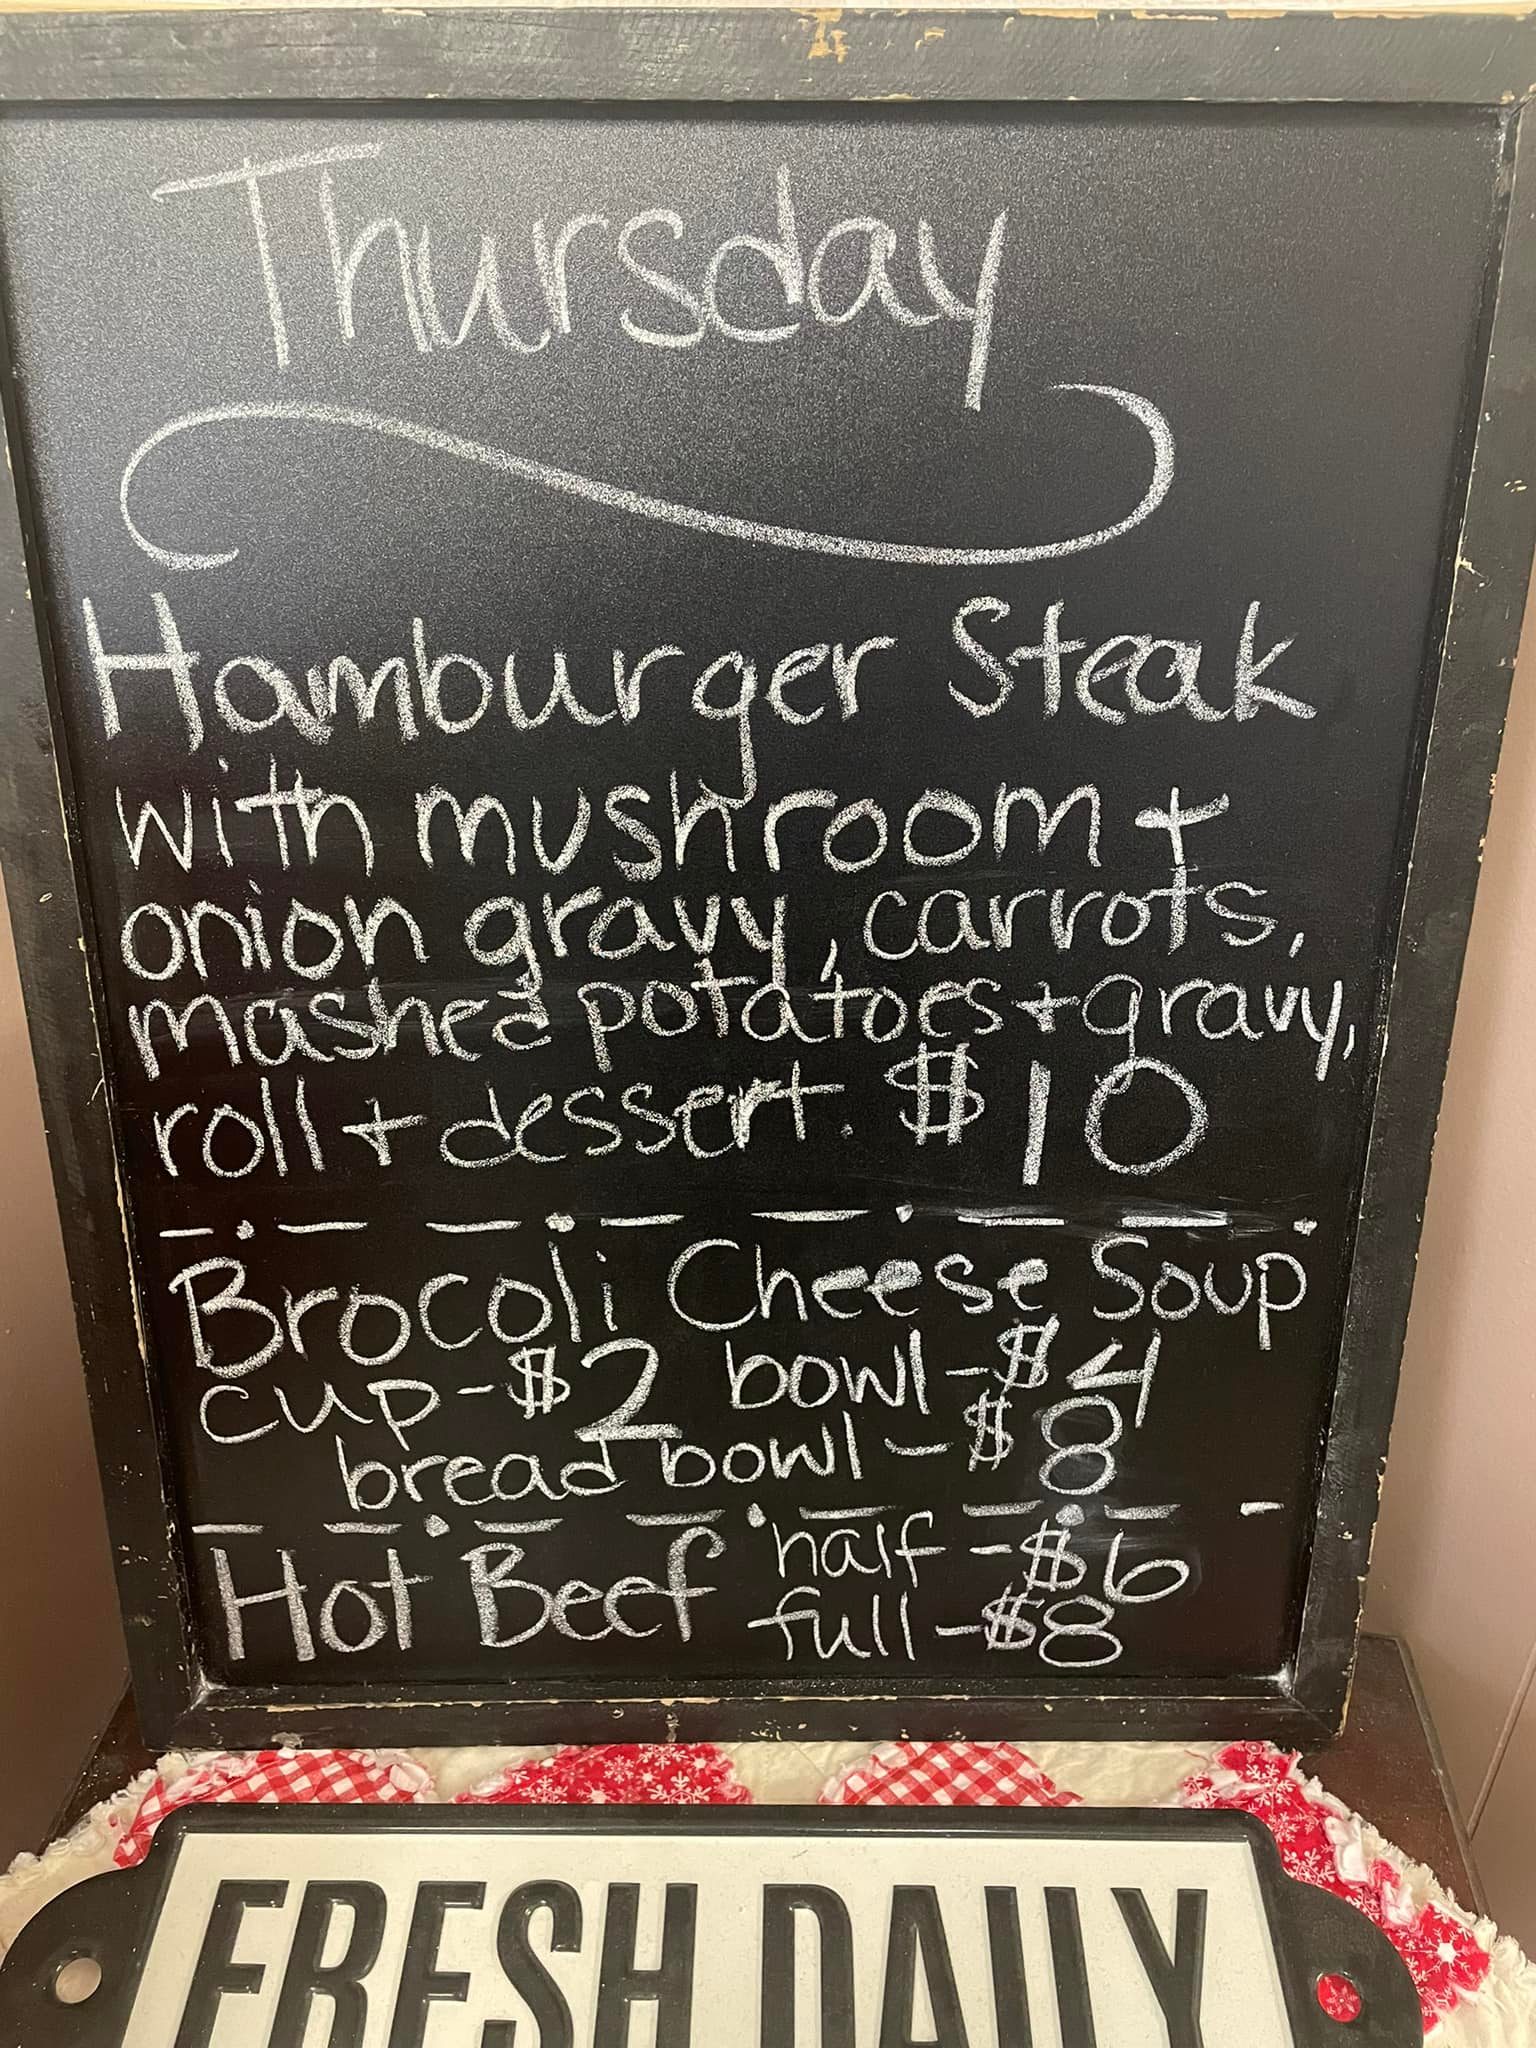 Thursday
Hamburger Steak
with mushroom +
onion gravy, carrots,
mashed potatoes + gravy,
roll + dessert. $10
Brocoli Cheese Soup
cup - $2 bowl - $4
bread bowl - $8
Hot Beef half - $6
full - $8
FRESH DAILY